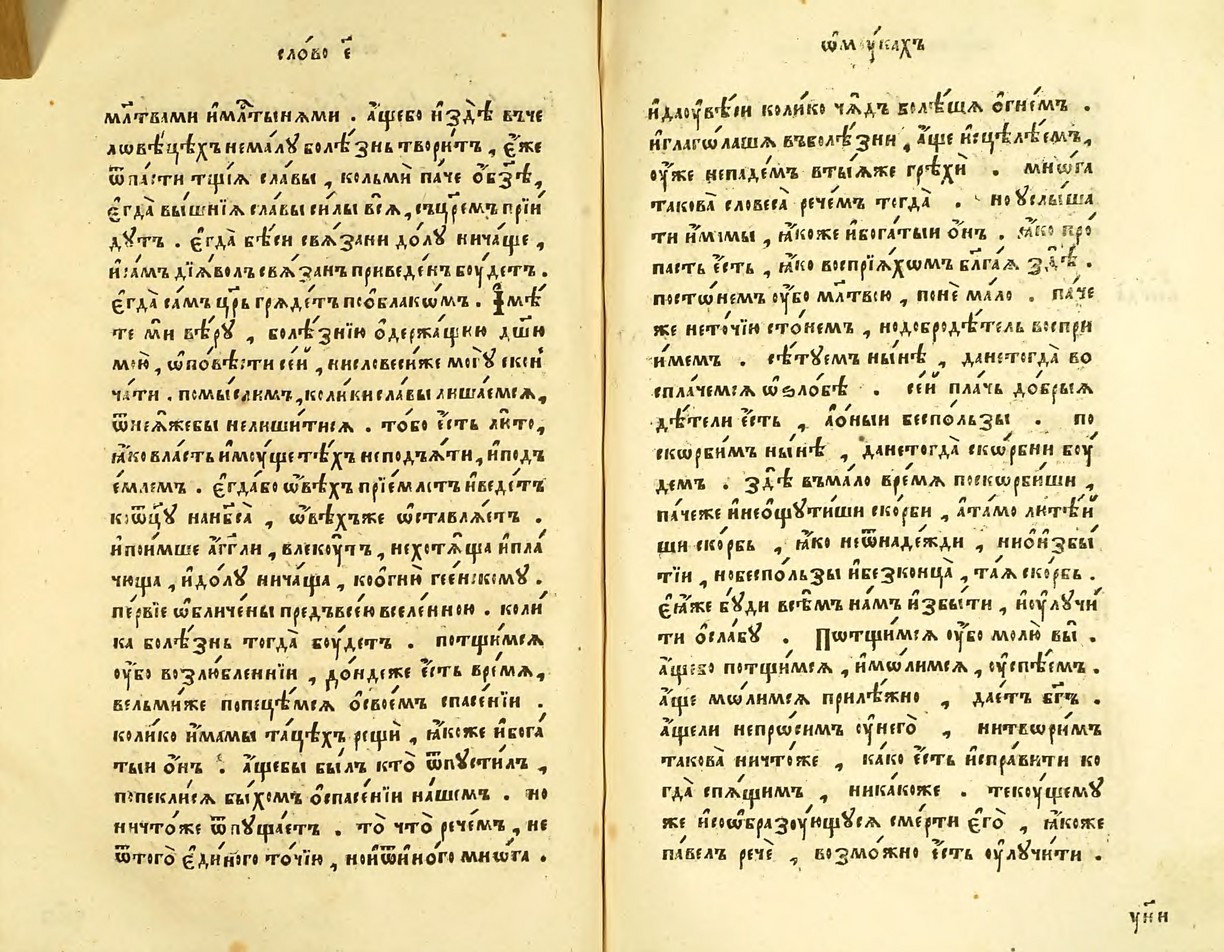 сло́во є҃
мл҃твами и҆мл҃тынѧми . а҆щебо и҆здѣ̀ въче
ловѣ́цѣхъ немалꙋ болѣ́знь твори́тъ , є҆́же
ѿпа́сти тщїѧ̀ сла́вы , кольмѝ па́че ѻ҆бзѣ ,
є҆гда̀ вы́шнїѧ сла́вы си́лы всѧ̀ , съцр҃емъ прїи
дꙋтъ . є҆гда̀ бѣ́си свѧ́зани до́лꙋ нича́ще ,
и҆са́мъ дїѧ́волъ свѧ́занъ приведе́нъ боу́детъ .
є҆гда̀ са́мъ цр҃ь грѧде́тъ пооблакѡ́мъ . І҆мѣ́
те мѝ вѣ́рꙋ , болѣ́знїю ѻ҆держа́щию дш҃ю
мою̀ , ѿпо́вѣсти сеѝ , нисловесиже могꙋ̀ скон
ча́ти . помы́слимъ , коли́ки сла́вы лиша́емсѧ ,
ѿнеѧ́жебы нелиши́тисѧ . то́бо є҆́сть лю́то ,
ꙗ҆́ко вла́сть и҆моу́ще тѣ́хъ неподъѧ́ти , и҆подъ
е́млемъ . є҆гда́бо ѡ҆вѣ́хъ прїе́млетъ и҆веде́тъ
коѿц҃ꙋ нанб҃са̀ , ѡ҆вѣ́хъже ѡ҆ставлѧ́етъ .
и҆пои́мше а҆́гг҃ли , влекоу́тъ , нехотѧ́ща и҆пла́
чюща , и҆до́лꙋ нича́ща , коо҆гню̀ гее́нскомꙋ .
пе́рвїе ѡ҆бличе́ны предъвсе́ю вселе́нною . коли́
ка болѣ́знь тогда̀ боу́детъ . потщи́мсѧ
оу҆́бо возлю́бленнїи , до́ндеже є҆́сть вре́мѧ ,
вельми́же попеце́мсѧ ѻ҆своє́мъ спасе́нїи .
коли́ко и҆́мамы тацѣ́хъ рещѝ , ꙗ҆́коже и҆бога́
тыи ѻ҆́нъ . а҆́щебы бы́лъ кто̀ ѿпꙋсти́лъ ,
попекли́сѧ бы́хомъ ѻ҆спасе́нїи на́шемъ . но
ничто́же ѿпꙋща́етъ . то̀ что̀ рече́мъ , не
ѿтого̀ є҆ди́ного то́чїю , нои҆ѿи́ного мно́га .
ѡ҆мꙋ́кахъ
и҆даоу҆вѣ́си коли́ко чѧ́дъ болѣ́щѧ ѻ҆гне́мъ .
и҆глаго́лашѧ въболѣ́зни , а҆́ще и҆сцѣлѣ́емъ ,
оу҆́же непаде́мъ втыѧ́же грѣхѝ . мно́га
такова̀ словеса̀ рече́мъ тогда̀ . но ꙋслы́ша
ти и҆́мамы , ꙗ҆́коже и҆бога́тыи ѻ҆́нъ . ꙗ҆́ко про́
пасть є҆́сть , ꙗ҆́ко воспрїѧ́хѡмъ бл҃га́ѧ здѣ̀ .
посто́немъ оу҆́бо мл҃твою , понѐ ма́ло . па́че
же нето́чїю сто́немъ , нодобродѣ́тель воспри
и́мемъ . сѣ́тꙋемъ ны́нѣ , данетогда̀ во
спла́чемсѧ ѡ҆ѕло́бѣ . се́й пла́чь до́брыѧ
дѣ́тели є҆́сть , а҆́ѻныи беспо́льзы . по
скѡрби́мъ ны́нѣ , данетогда̀ скѡ́рбни боу́
демъ . здѣ̀ въма́ло вре́мѧ поскѡ́рбиши ,
па́чеже и҆неѻ҆щꙋти́ши ско́рби , а҆та́мо лютѣ́и
щи ско́рбь , ꙗ҆́ко неѿнаде́жди , ниоизбы́
тїи , нобеспо́льзы и҆безконца̀ , та́ѧ ско́рбь .
є҆ѧ́же бꙋ́ди всѣ́мъ на́мъ и҆збы́ти , и҆оу҆лꙋчи́
ти ѻ҆сла́бꙋ . Пѡтщи́мсѧ оу҆́бо молю̀ вы̀ .
а҆́щебо потщи́мсѧ , и҆мо́лимсѧ , оу҆спѣ́емъ .
а҆́ще мо́лимсѧ прилѣ́жно , дае́тъ бг҃ъ .
а҆́щели непро́симъ оу҆него̀ , нитвори́мъ
такова̀ ничто́же , ка́ко є҆́сть и҆спра́вити ко
гда̀ спѧ́щимъ , ника́коже . текоу́щемꙋ
же и҆соо҆бразоу́ющꙋсѧ сме́рти є҆го̀ , ꙗ҆́коже
па́велъ речѐ , возмо́жно є҆́сть оу҆лꙋчи́ти .
ун҃и